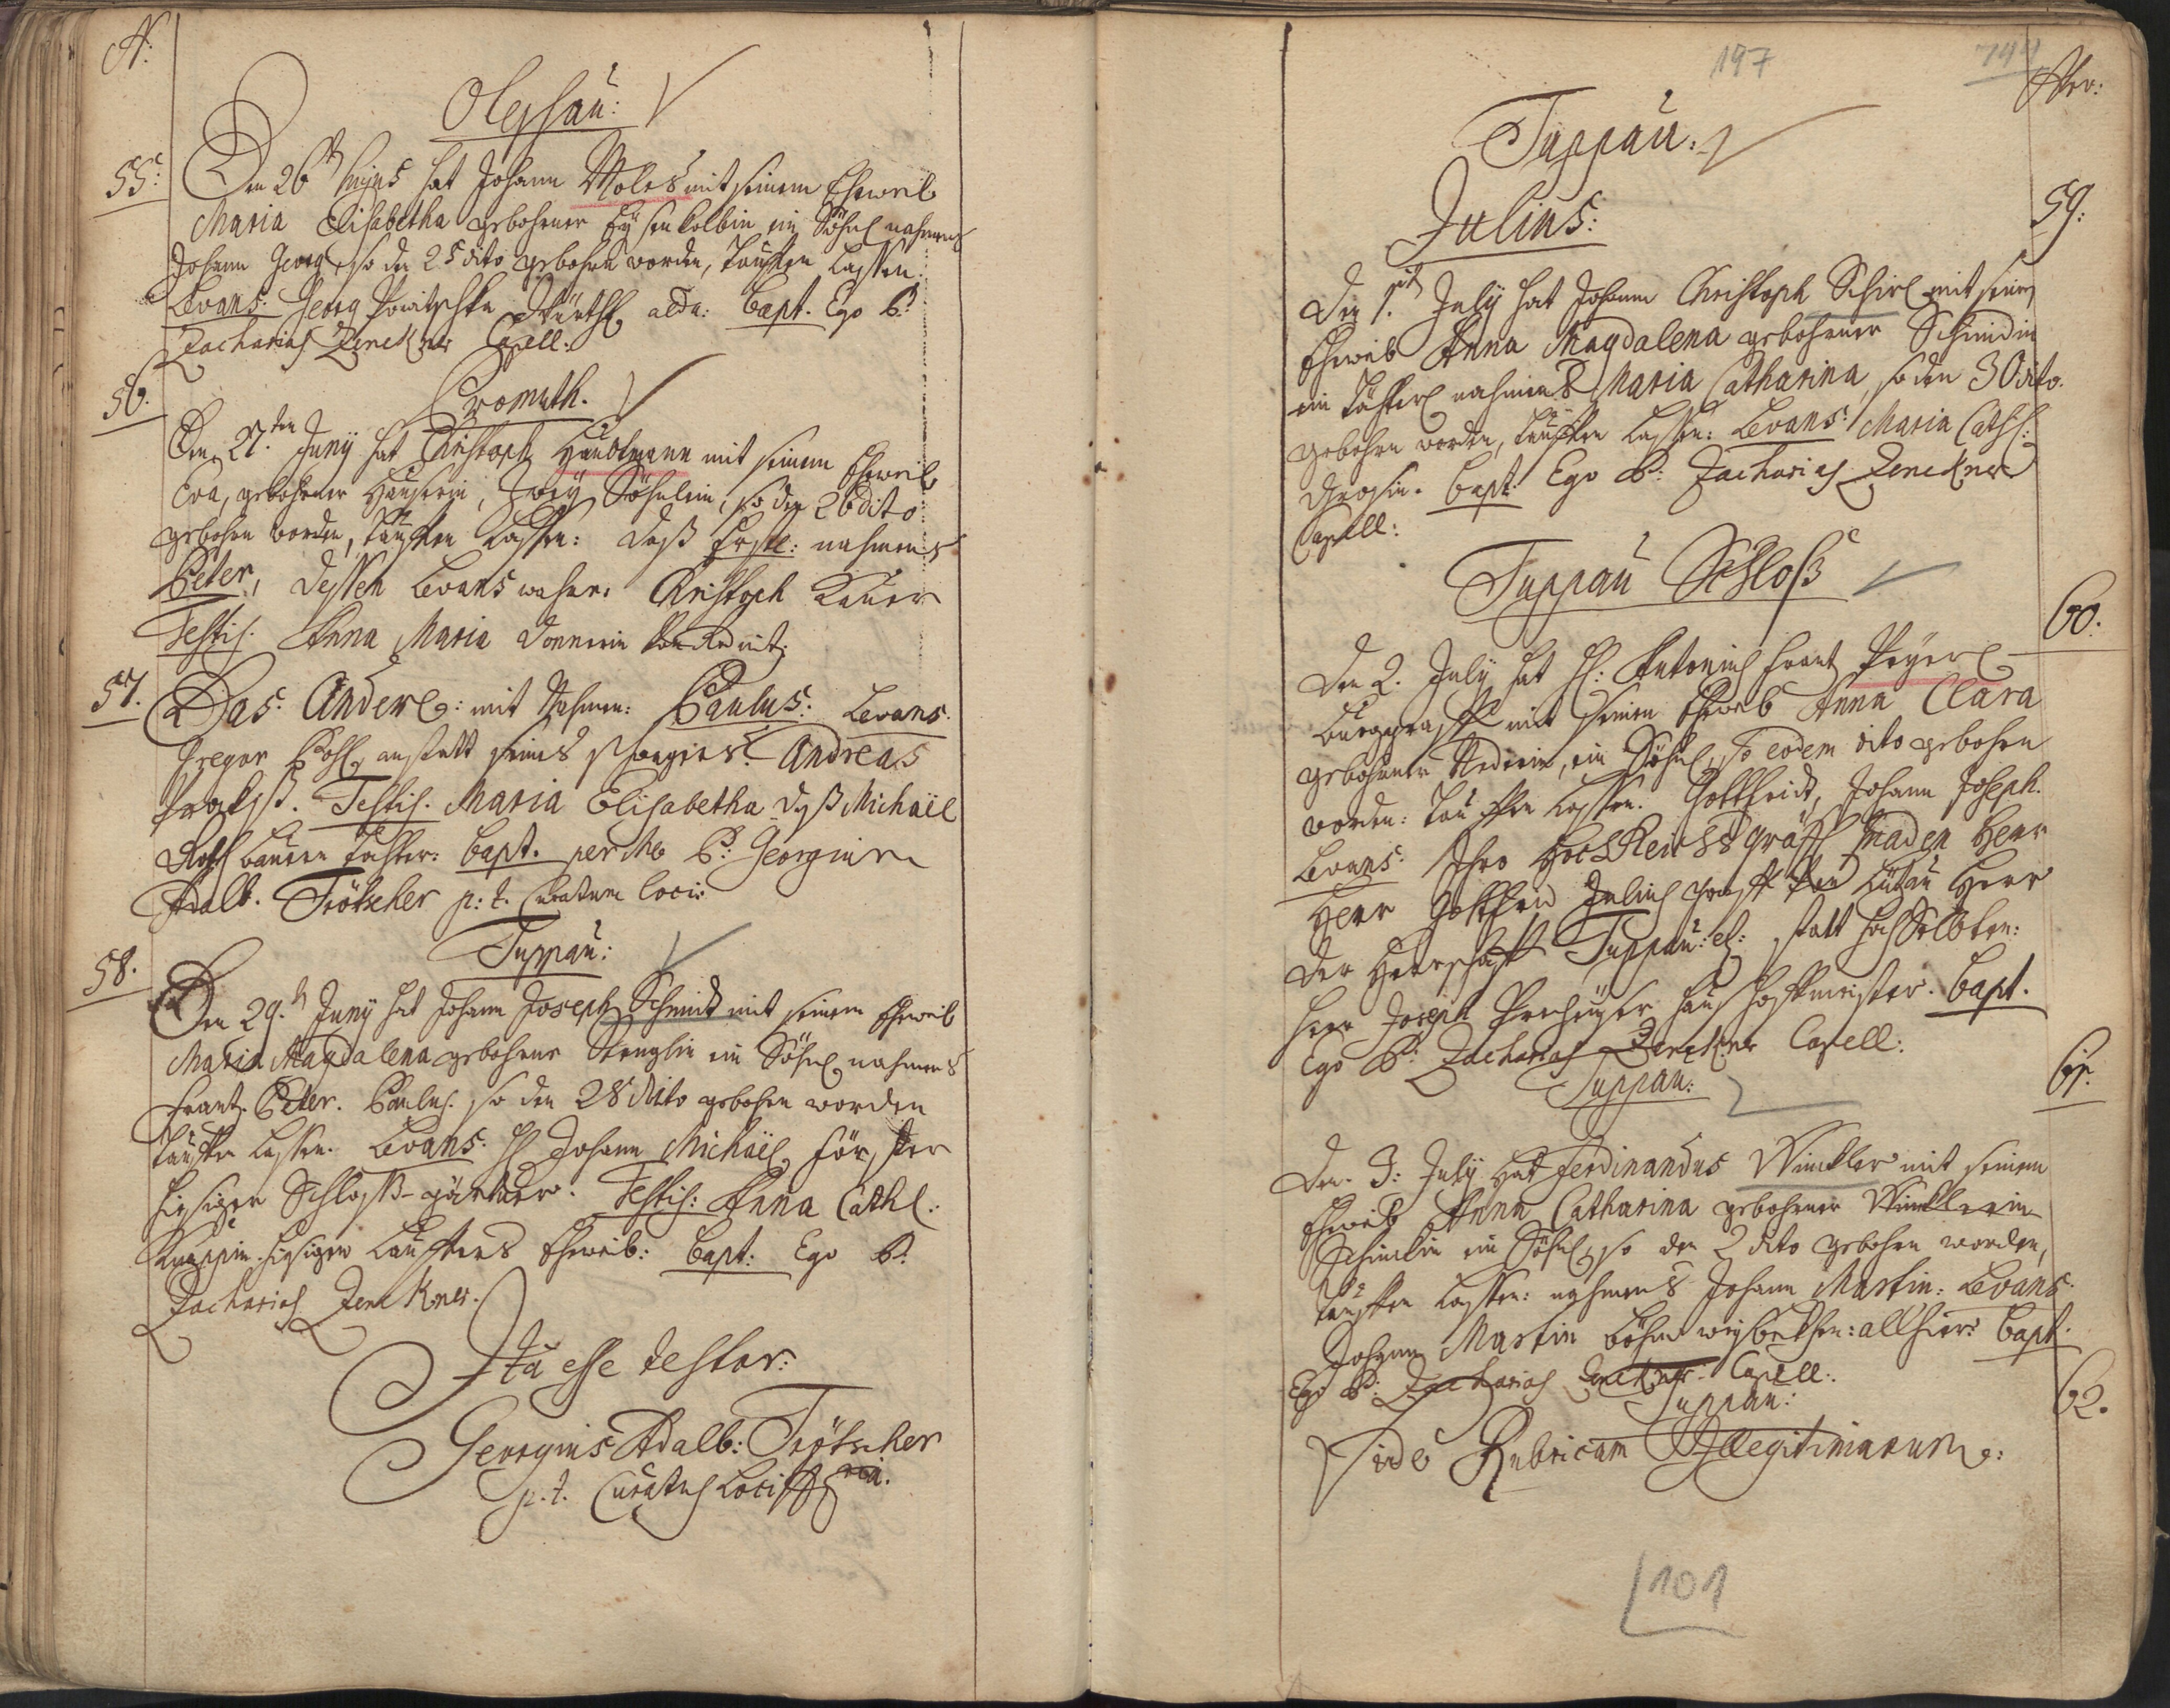 N:
Oleschau:
55:
Den 26t hujus hat Johann Moles mit seinem Eheweib
Maria Elisabetha gebohrner Eysenkolbin ein Söhnl nahmens
Johann Georg, so den 25 dito gebohrn worden, tauffen lassen.
Levans: Georg alda: Bapt. Ego P:
Zacharias Zenckner Capell:
56.
Promuth.
Den 27ten Juny hat Christoph Hautmann mit seinem Eheweib
Eva, gebohrner Hauserin, Zwey Söhnlein, so den 26 dito
gebohrn worden, tauffen lassen: daß Erste: nahmens
Peter, dessen Levans wahr: Christoph
Testis. Anna Maria Donnerin
57.
Das Andere: mit Nahmen: Paulus: Levans.
Gregor anstatt seines Andreas
Testis. Maria Elisabetha deß Michaël
bauern tochter: Bapt. per Me P: Georgium
Adalb. Trötscher p: t. Curatum loci:
Tuppau:
58.
Den 29.t Juny hat Johann Joseph Schmidt mit seinem Eheweib
Maria Magdalena gebohrner Stenglin ein Söhnl nahmens
Frantz Peter. Paulus. so den 28 dito gebohrn worden
tauffen lassen. Levans. H Johann Michaël Förster
hiesiger Schloß-gärtner. Testis: Anna Cath:
Knappin hiesigen Lauffers Eheweib: Bapt: Ego P:
Zacharias Zenckner.
Ita esse testor:
Georgius Adalb: Trötscher
p. t. Curatus Loci
197
744
Nro:
Tuppau:
Julius:
59:
Den 1. July hat Johann Christoph Schirl mit seinem
Eheweib Anna Magdalena gebohrner Schmidin
ein töchterl nahmens Maria Catharina, so den 30 dito
gebohrn worden, tauffen lassen: Levans: Maria Cath:
Grosin. Bapt: Ego P: Zacharias Zenckner
Capell:
Tuppau Schloß
60:
Den 2. July hat H: Antonius Frantz Peyerl
Burggraff mit seinem Eheweib Anna Clara
gebohrner ein Söhnl, so eodem dito gebohrn
worden: tauffen lassen. Gottfridt, Johann Joseph.
Levans: Ihro HochReichsgräffl Gnaden Herr
Herr Gottfrid Julius graff von Lützau Herr
der Herrschafft Tuppau: statt hochselbten:
Herr Joseph haus hoffmeister. Bapt.
Ego P: Zacharias Zenckner Capell:
Tuppau:
61.
Den 3: July hat Ferdinandus Winckler mit seinem
Eheweib Anna Catharina gebohrner Wincklerin
Schimlin ein Söhnl, so den 2 dito gebohrn worden,
tauffen lassen: nahmens Johann Martin: Levans:
Johann Martin Böhm allhier: Bapt.
Ego P: Zacharias Zenckner Capell:
Tuppau:
62.
Vide Rubricam Illegitimarum:
101